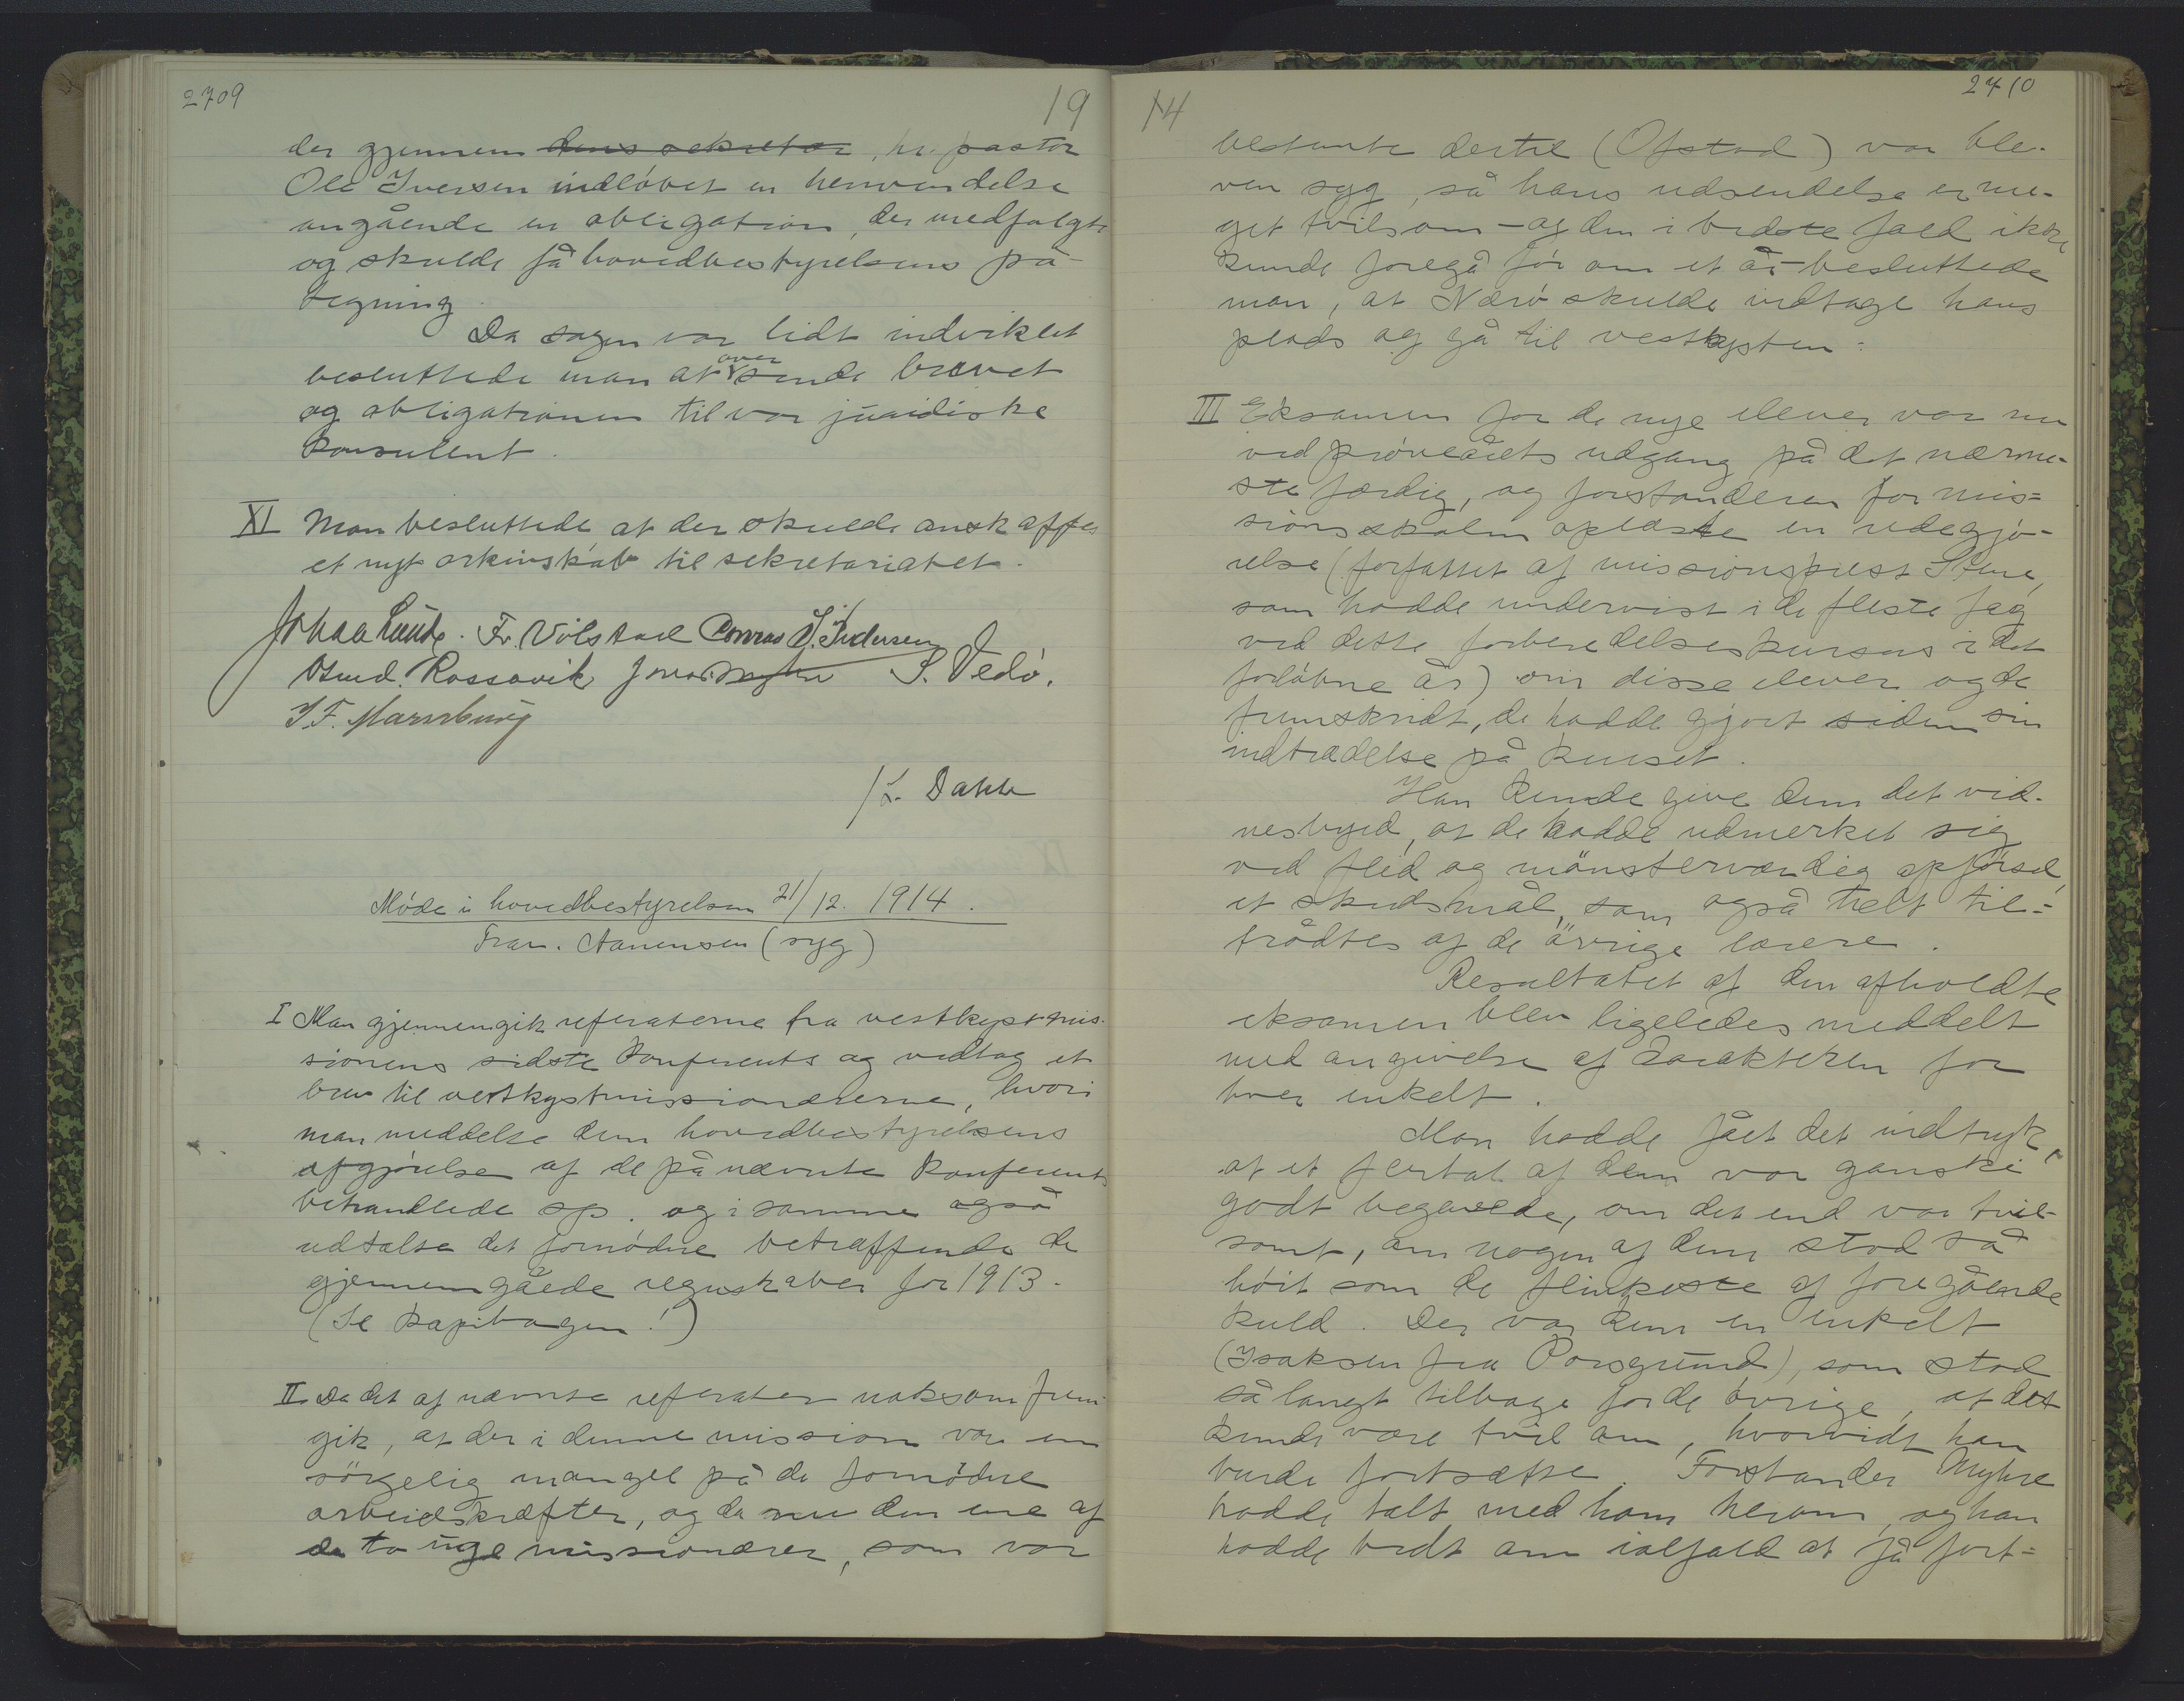 2709
19
der gjennem dens sekretær, hr. pastor
Ole Iversen indløbet en henvendelse
angående en obligation, der medfulgte
og skulde få hovedbestyrelsens på-
tegning.
Da sagen var lidt indviklet
besluttede man at oversende brevet
og obligationen til vor juridiske
konsulent.
XI Man besluttede at der skulde anskaffes
et nyt arkivskab til sekretariatet.
Johan Lunde. Fr. Völstad Conrad J. Andersen
Osmd. Rossavik Jonas Myhre S. Vedø.
J. F. Marsburg
/ L. Dahle
Møde i hovedbestyrelsen 21/12. 1914.
Frav. Aanensen (syg)
I Man gjennemgik referaterne fra vestkystmis-
sionens sidste konferents og vedtog et
brev til vestkystmissionærerne, hvori
man meddelte dem hovedbestyrelsens
afgjørelse af de på nævnte konferents
behandlede sp. og i samme også
udtalte det fornødne betræffende de
gjennemgåede regnskaber for 1913.
(Se kopibogen!)
II Da det af nævnte referater noksom frem-
gik, at der i denne mission var en
sörgelig mangel på de fornødne
arbeidskræfter, og da nu den ene af
de to nye missionærer, som var
14
2710
bestemte dertil (Ofstad) var ble-
ven syg, så hans udsendelse er me-
get tvilsom – og den i bedste fald ikke
kunde foregå før om et år – besluttede
man, at Nærø skulde indtage hans
plads og gå til vestkysten.
III Eksamen for de nye elever var nu
ved prøveårets udgang på det nærme-
ste færdig, og forstanderen for mis-
sionsskolen oplæste en redegjø-
relse (forfattet af missionsprest Stene,
som hadde undervist i de fleste fag
ved dette forberedelseskursus i det
forløbne år) om disse elever og de
fremskridt, de hadde gjort siden sin
indtrædelse på kurset.
Han kunde give dem det vid-
nesbyrd, at de hadde udmerket sig
ved flid og mönsterværdig opførsel,
et skudsmål, som også helt til-
trådtes af de øvrige lærere.
Resultatet af den afholdte
eksamen blev ligeledes meddelt
med angivelse af karakteren for
hver enkelt.
Man hadde fået det indtryk,
at et flertal af dem var ganske
godt begavede, om det end var tvil-
somt, om nogen af dem stod så
høit som de flinkeste af foregående
kuld. Der var kun en enkelt
(Isaksen fra Porsgrund), som stod
så langt tilbage for de øvrige, at det
kunde være tvil om, hvorvidt han
burde fortsætte. Forstander Myhre
hadde talt med ham herom, og han
hadde bedt om ialfald at få fort-